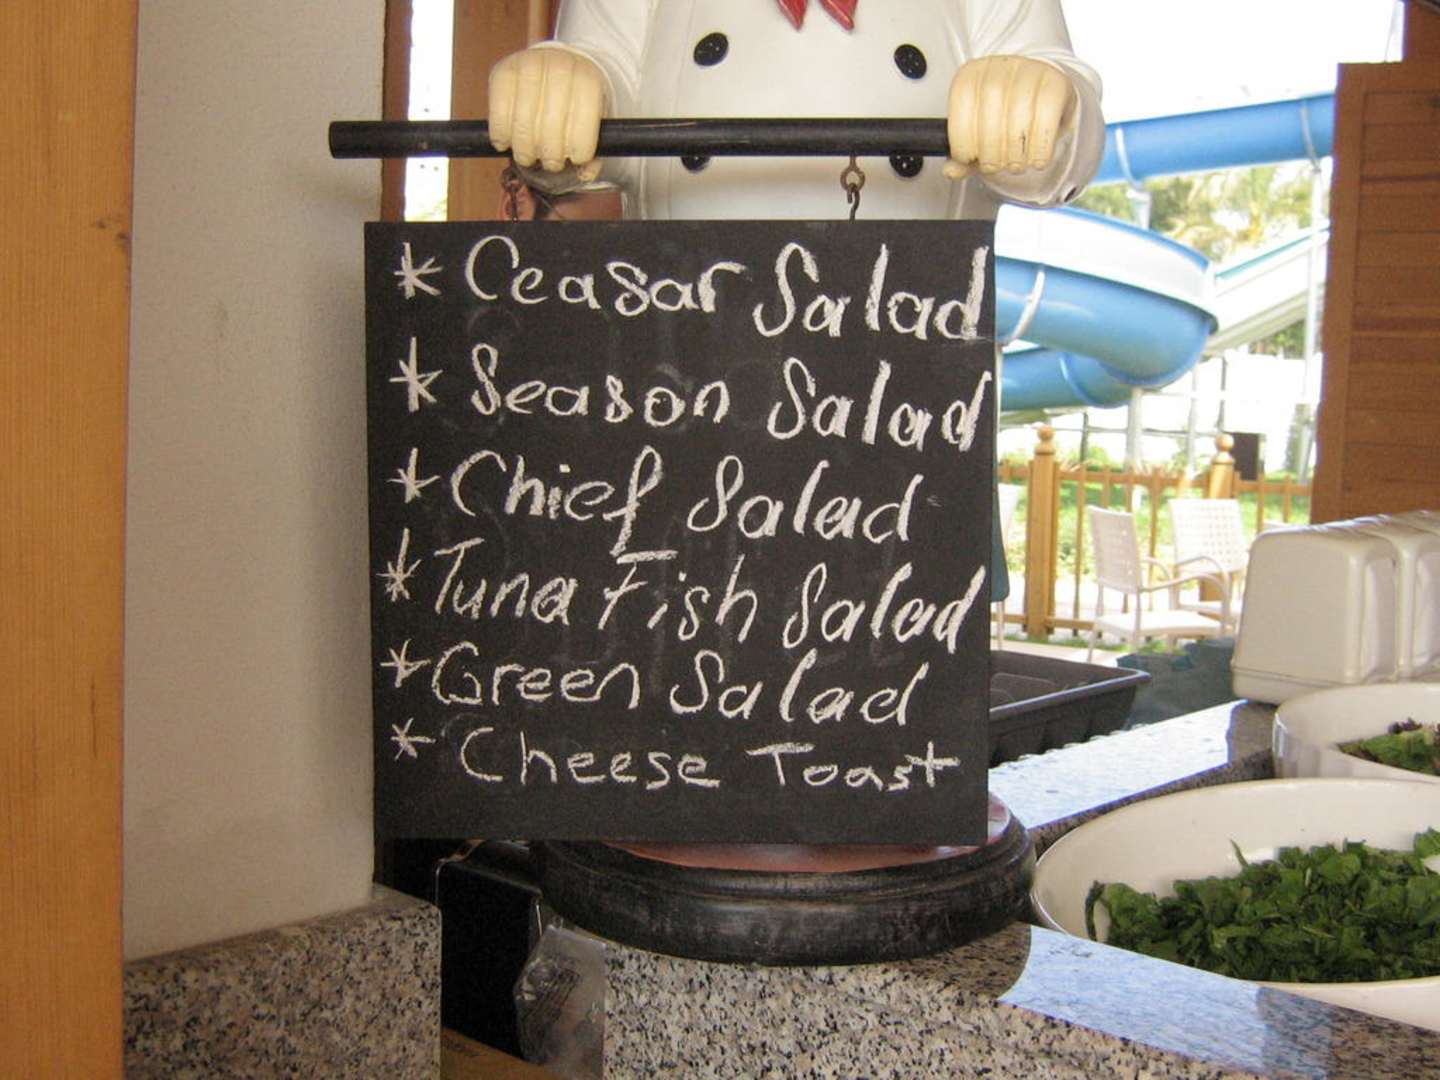 * Ceasar Salad
* Season Salad
* Chief Salad
* Tuna Fish Salad
* Green Salad
* Cheese Toast